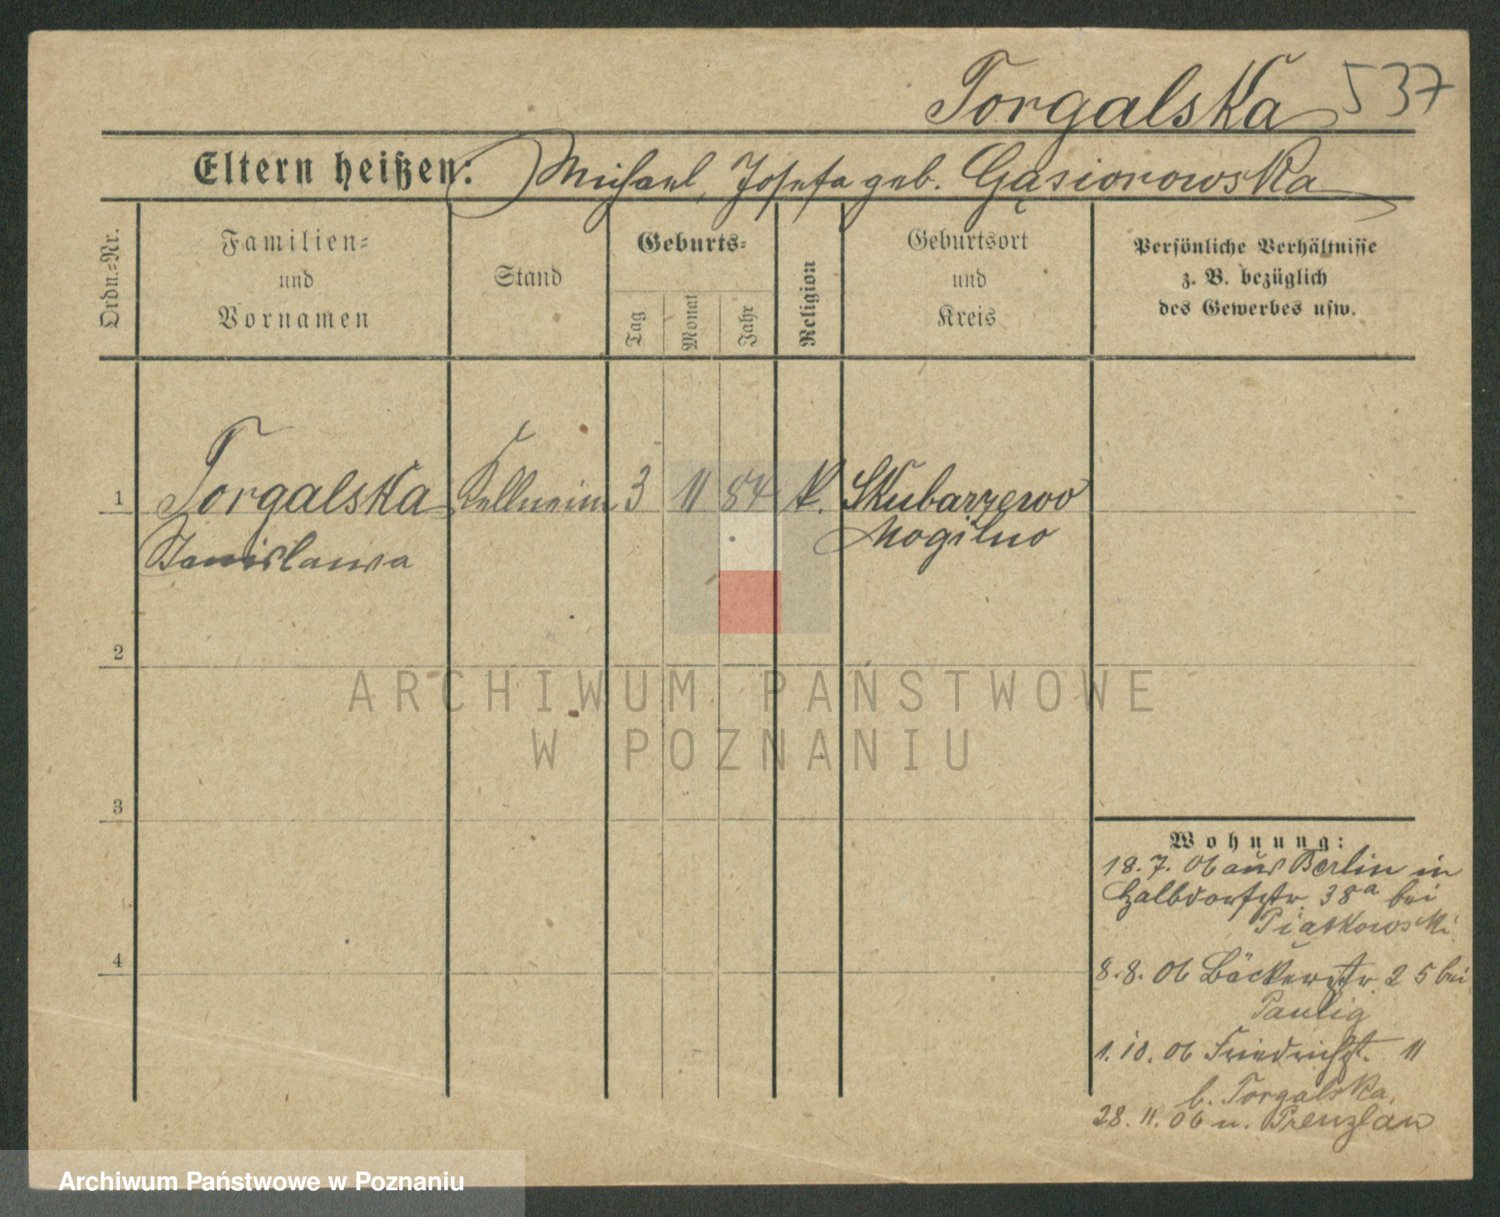 Torgalska 537
Eltern heißen: Michael, Josefa geb. Gąsiorowska
Ordn.-Nr.
Familien-
und
Vornamen
Stand
Geburts-
Tag
Monat
Jahr
Religion
Geburtsort
und
Kreis
Persönliche Verhältnisse
z. B. bezüglich
des Gewerbes usw.
1 Torgalska Kellnerin 3 11 84 k. Skubarzewo
Stanislawa Mogilno
2
3
4
Wohnung:
18. 7. 06 aus Berlin in
Halbdorfstr. 38a bei
Piatkowski
8. 8. 06 Bäckerstr. 25 bei
Paulig
1. 10. 06 Friedrichst. 11
b. Torgalska
28. 11. 06 n. Prenzlau
ARCHIWUM PAŃSTWOWE
W POZNANIU
Archiwum Państwowe w Poznaniu